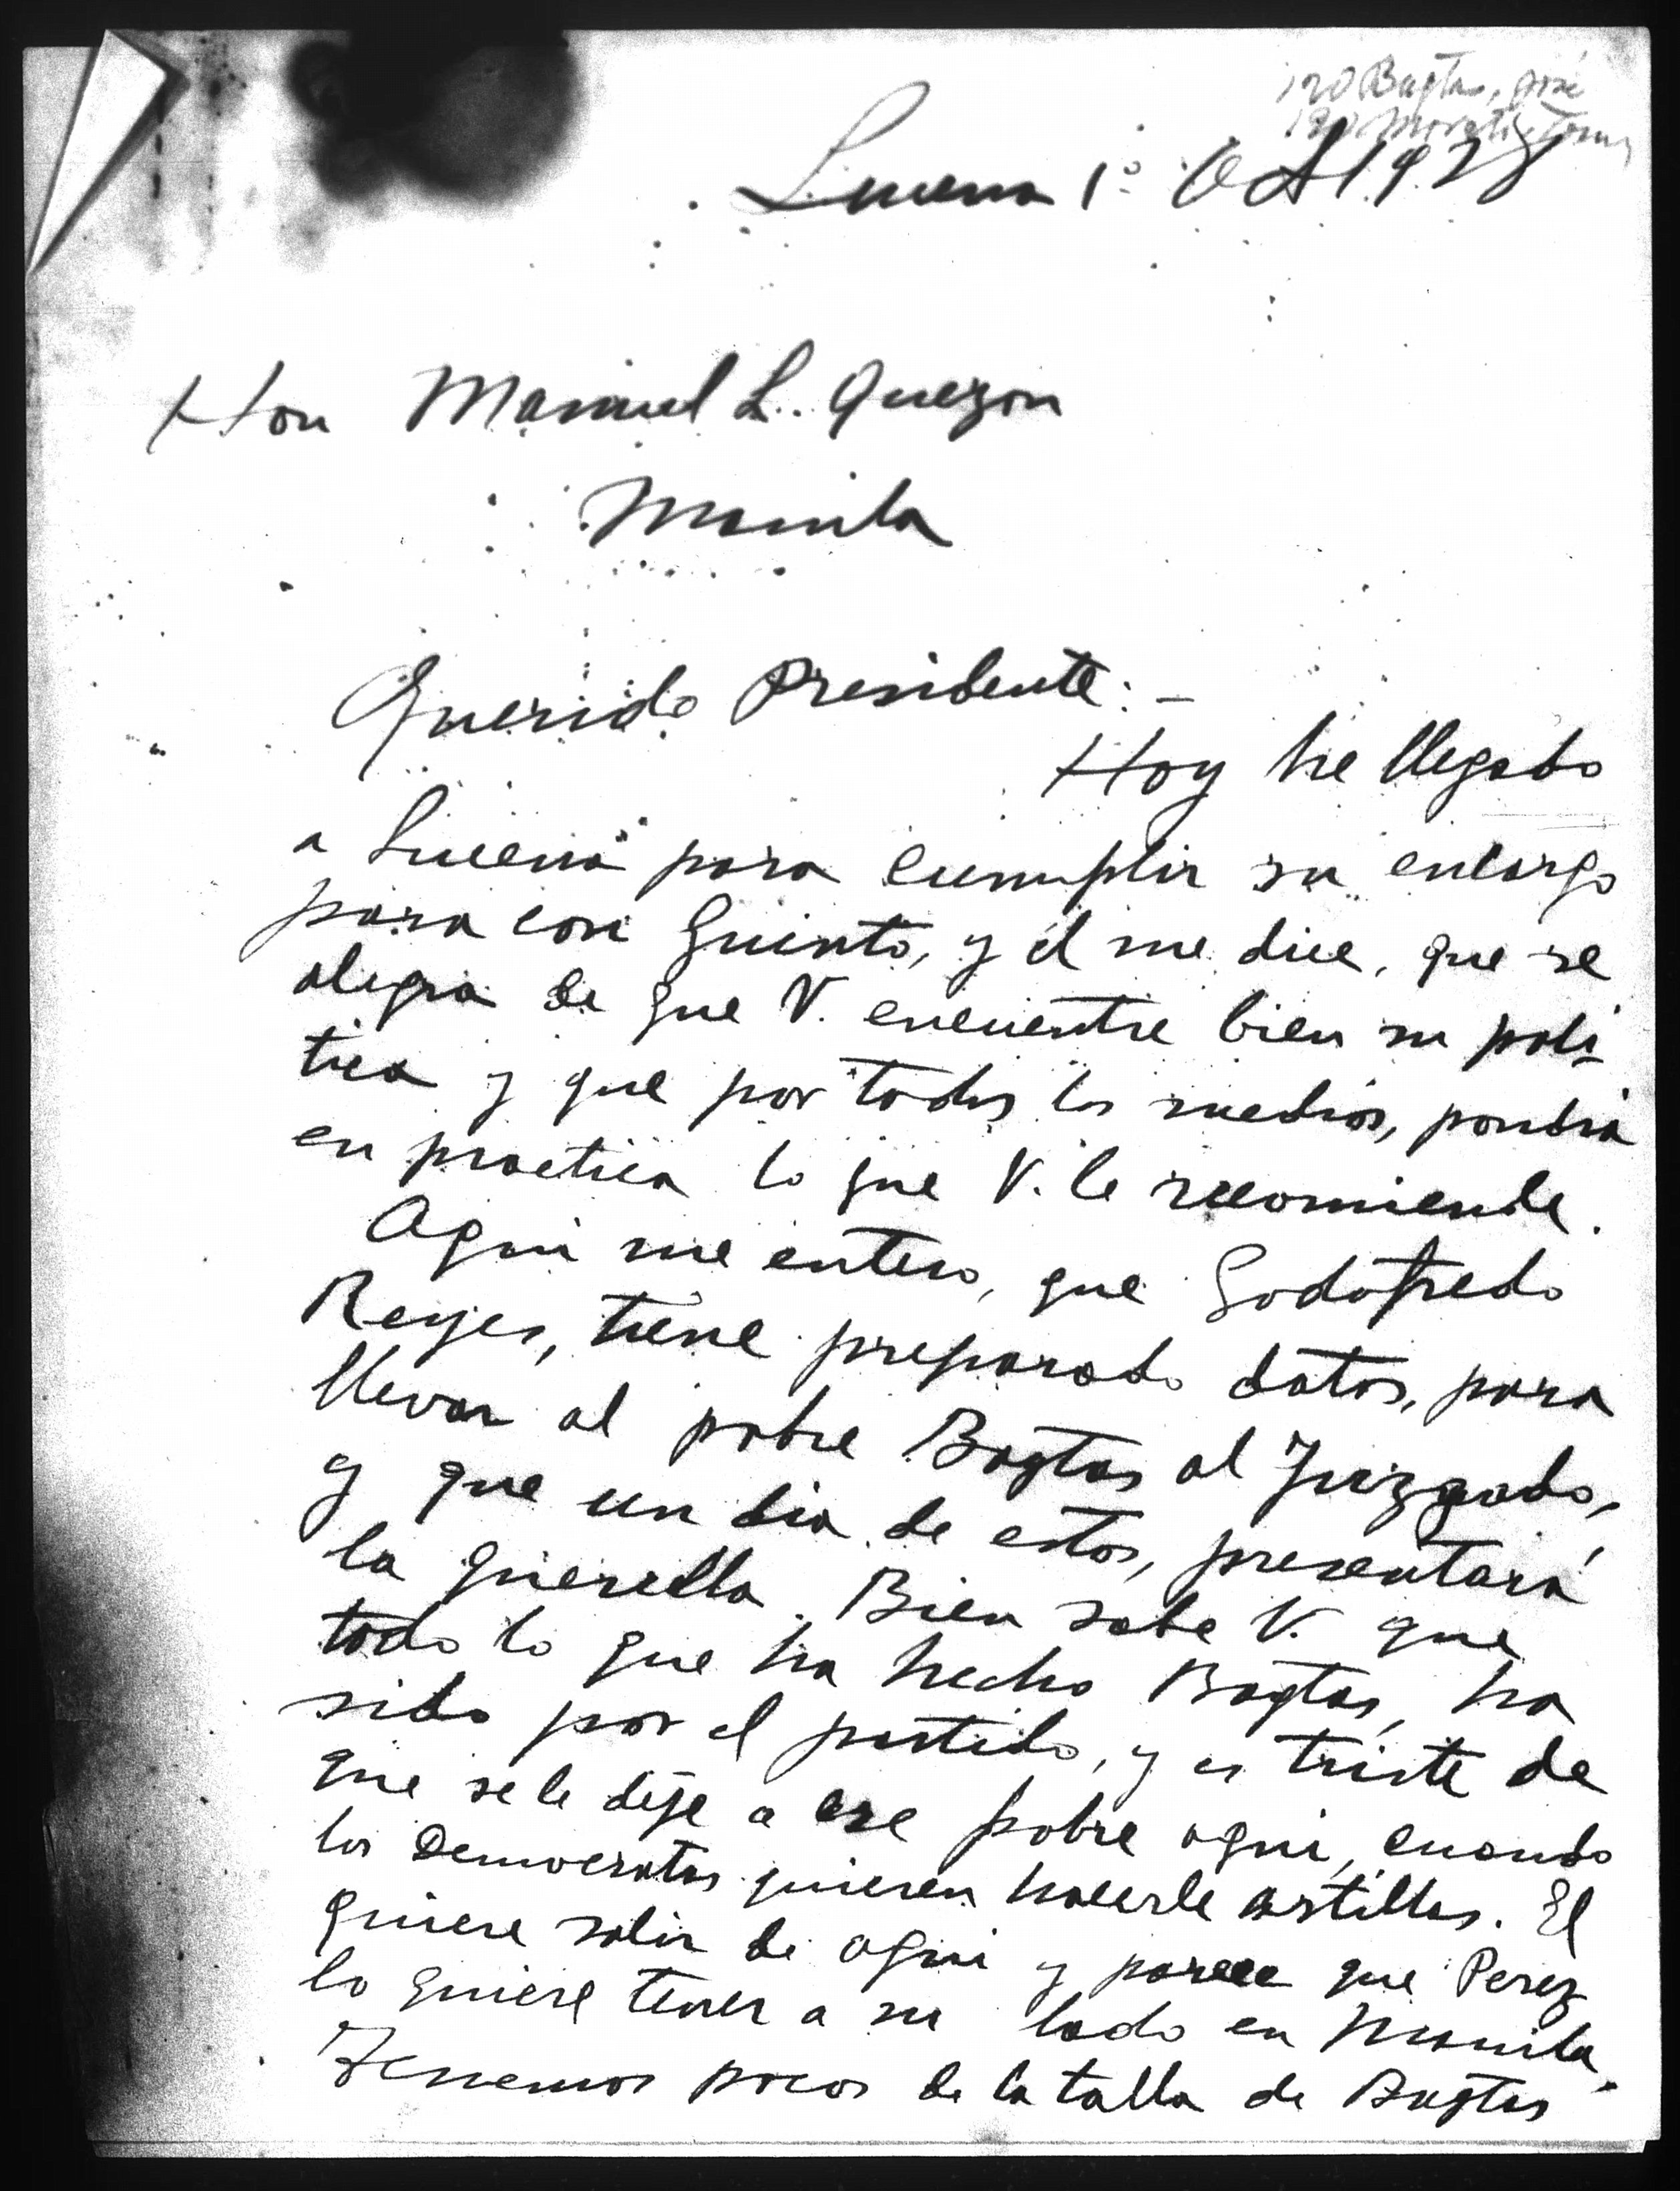 120 Bagtas, José
Lucena 1º Oct 1928
Hon Manuel L. Quezon
Manila
Querido Presidente: -
Hoy he llegado
a Lucena para cumplir su encargo
para con Guinto, y el me dice, que se
alegra de que V. encuentre bien su poli
tica y que por todos los medios, pondrá
en practica lo que V. le recomiende.
Aqui me entero, que Godofredo
Reyes, tiene preparado datos, para
llevar al pobre Bagtas al Juzgado,
y que un dia de estos, presentará
la querella. Bien sabe V. que
todo lo que ha hecho Bagtas, ha
sido por el partido, y es triste de
que se le deje a ese pobre aqui, cuando
los Democratas quieren hacerle astillas. El
quiere salir de aqui y parece que Perez
lo quiere tener a su lado en Manila.
Tenemos pocos de la talla de Bagtas